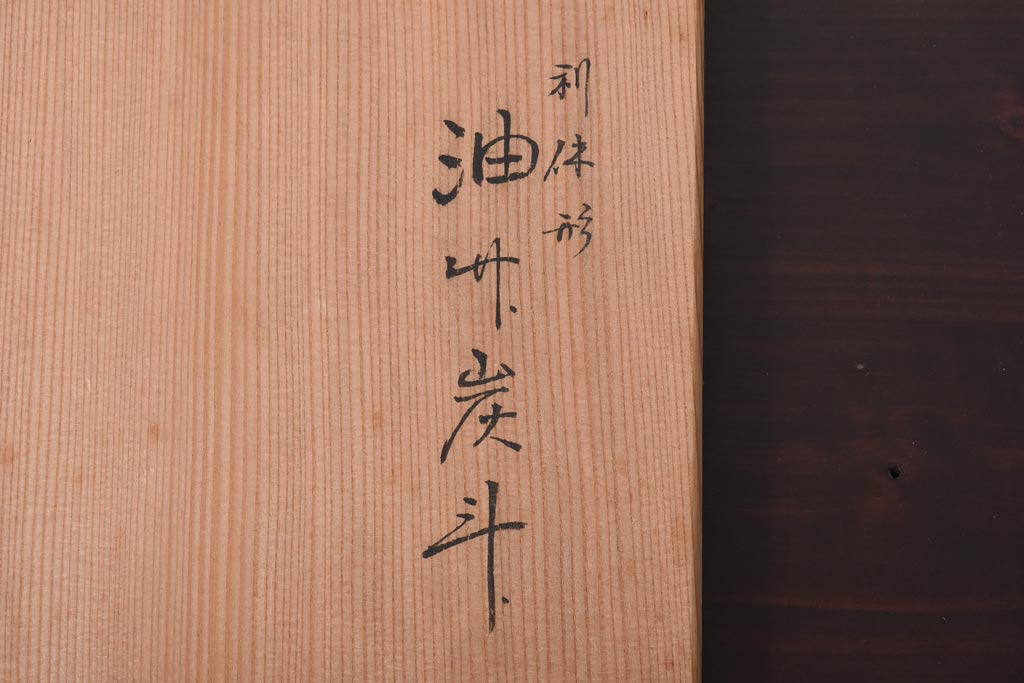 利休形
油竹炭斗